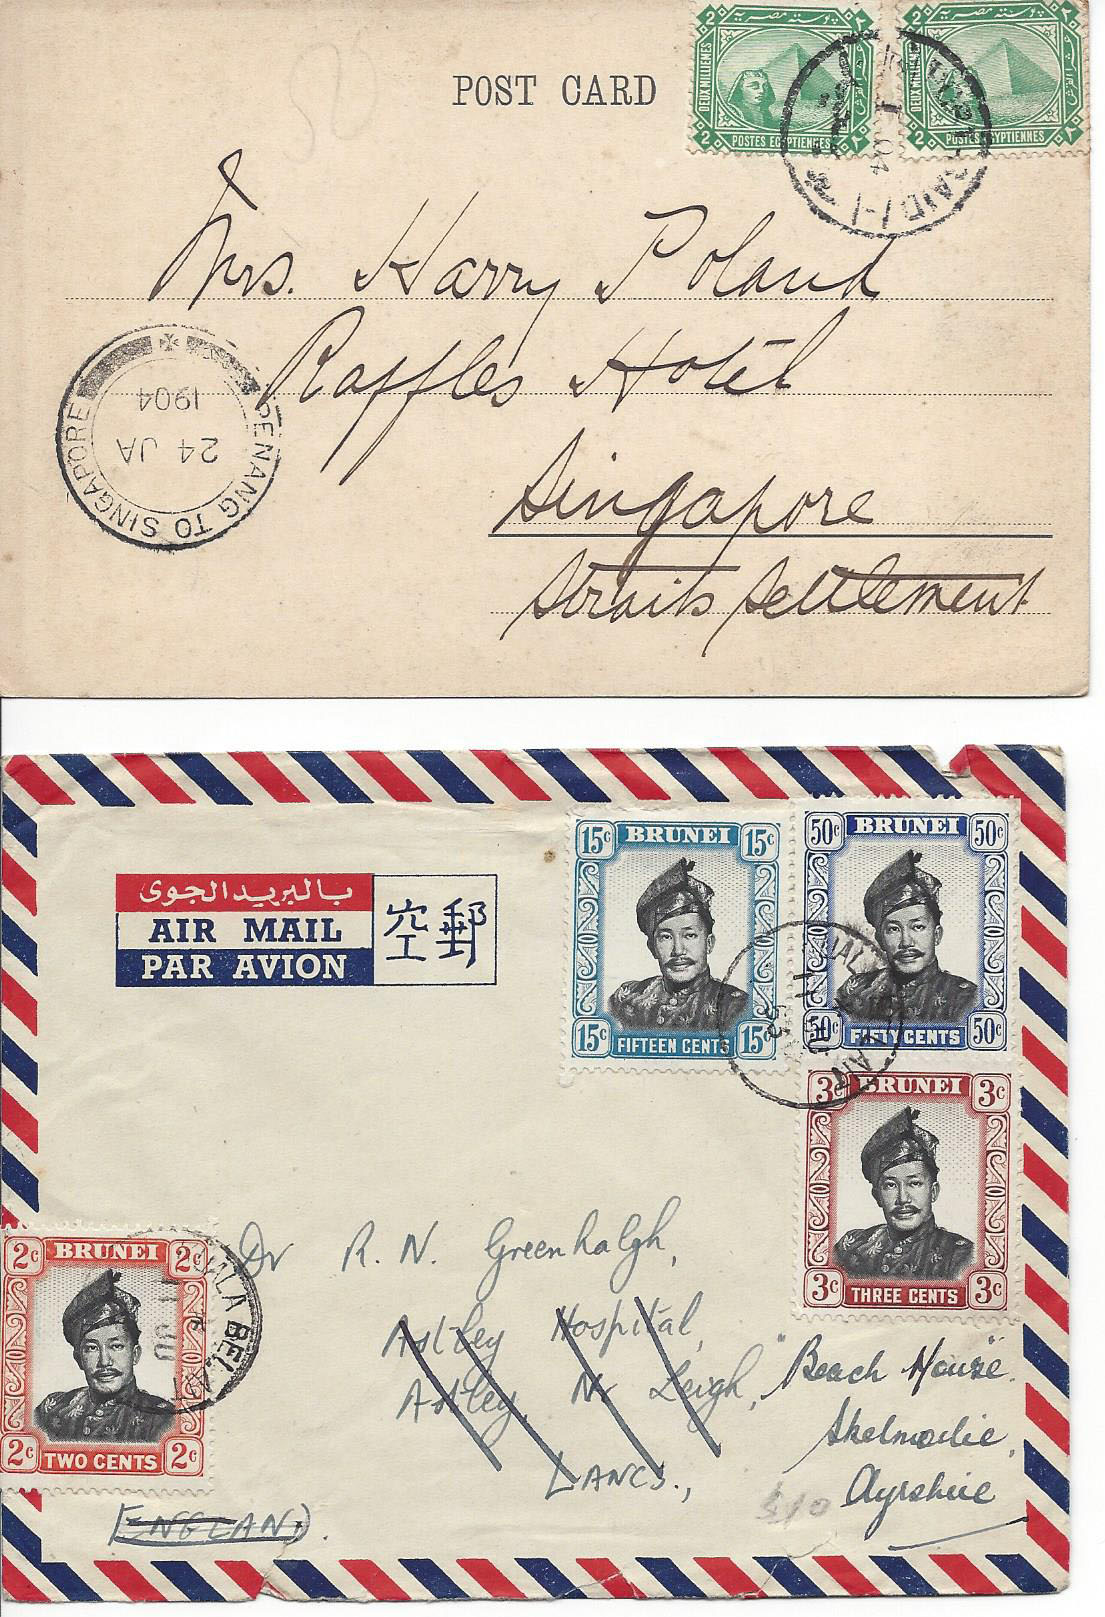 POST CARD
2 پوسته مصريه ٢
DEUX MILLIEMES
2 POSTES EGYPTIENNES ٢
2 پوسته مصريه ٢
DEUX MILLIEMES
2 POSTES EGYPTIENNES ٢
PORT-SAID
I 04
Mrs. Harry Poland
Raffles Hotel
Singapore
Straits Settlement
PENANG TO SINGAPORE
24 JA
1904
بالبريد الجوى
AIR MAIL
PAR AVION
空郵
15c BRUNEI 15c
15c FIFTEEN CENTS 15c
50c BRUNEI 50c
50c FIFTY CENTS 50c
3c BRUNEI 3c
3c THREE CENTS 3c
2c BRUNEI 2c
2c TWO CENTS 2c
KUALA BELAIT
Dr R. N. Greenhalgh,
Astley Hospital,
Astley, Nr Leigh,
LANCS.,
ENGLAND.
"Beach House".
Skelmorlie,
Ayrshire